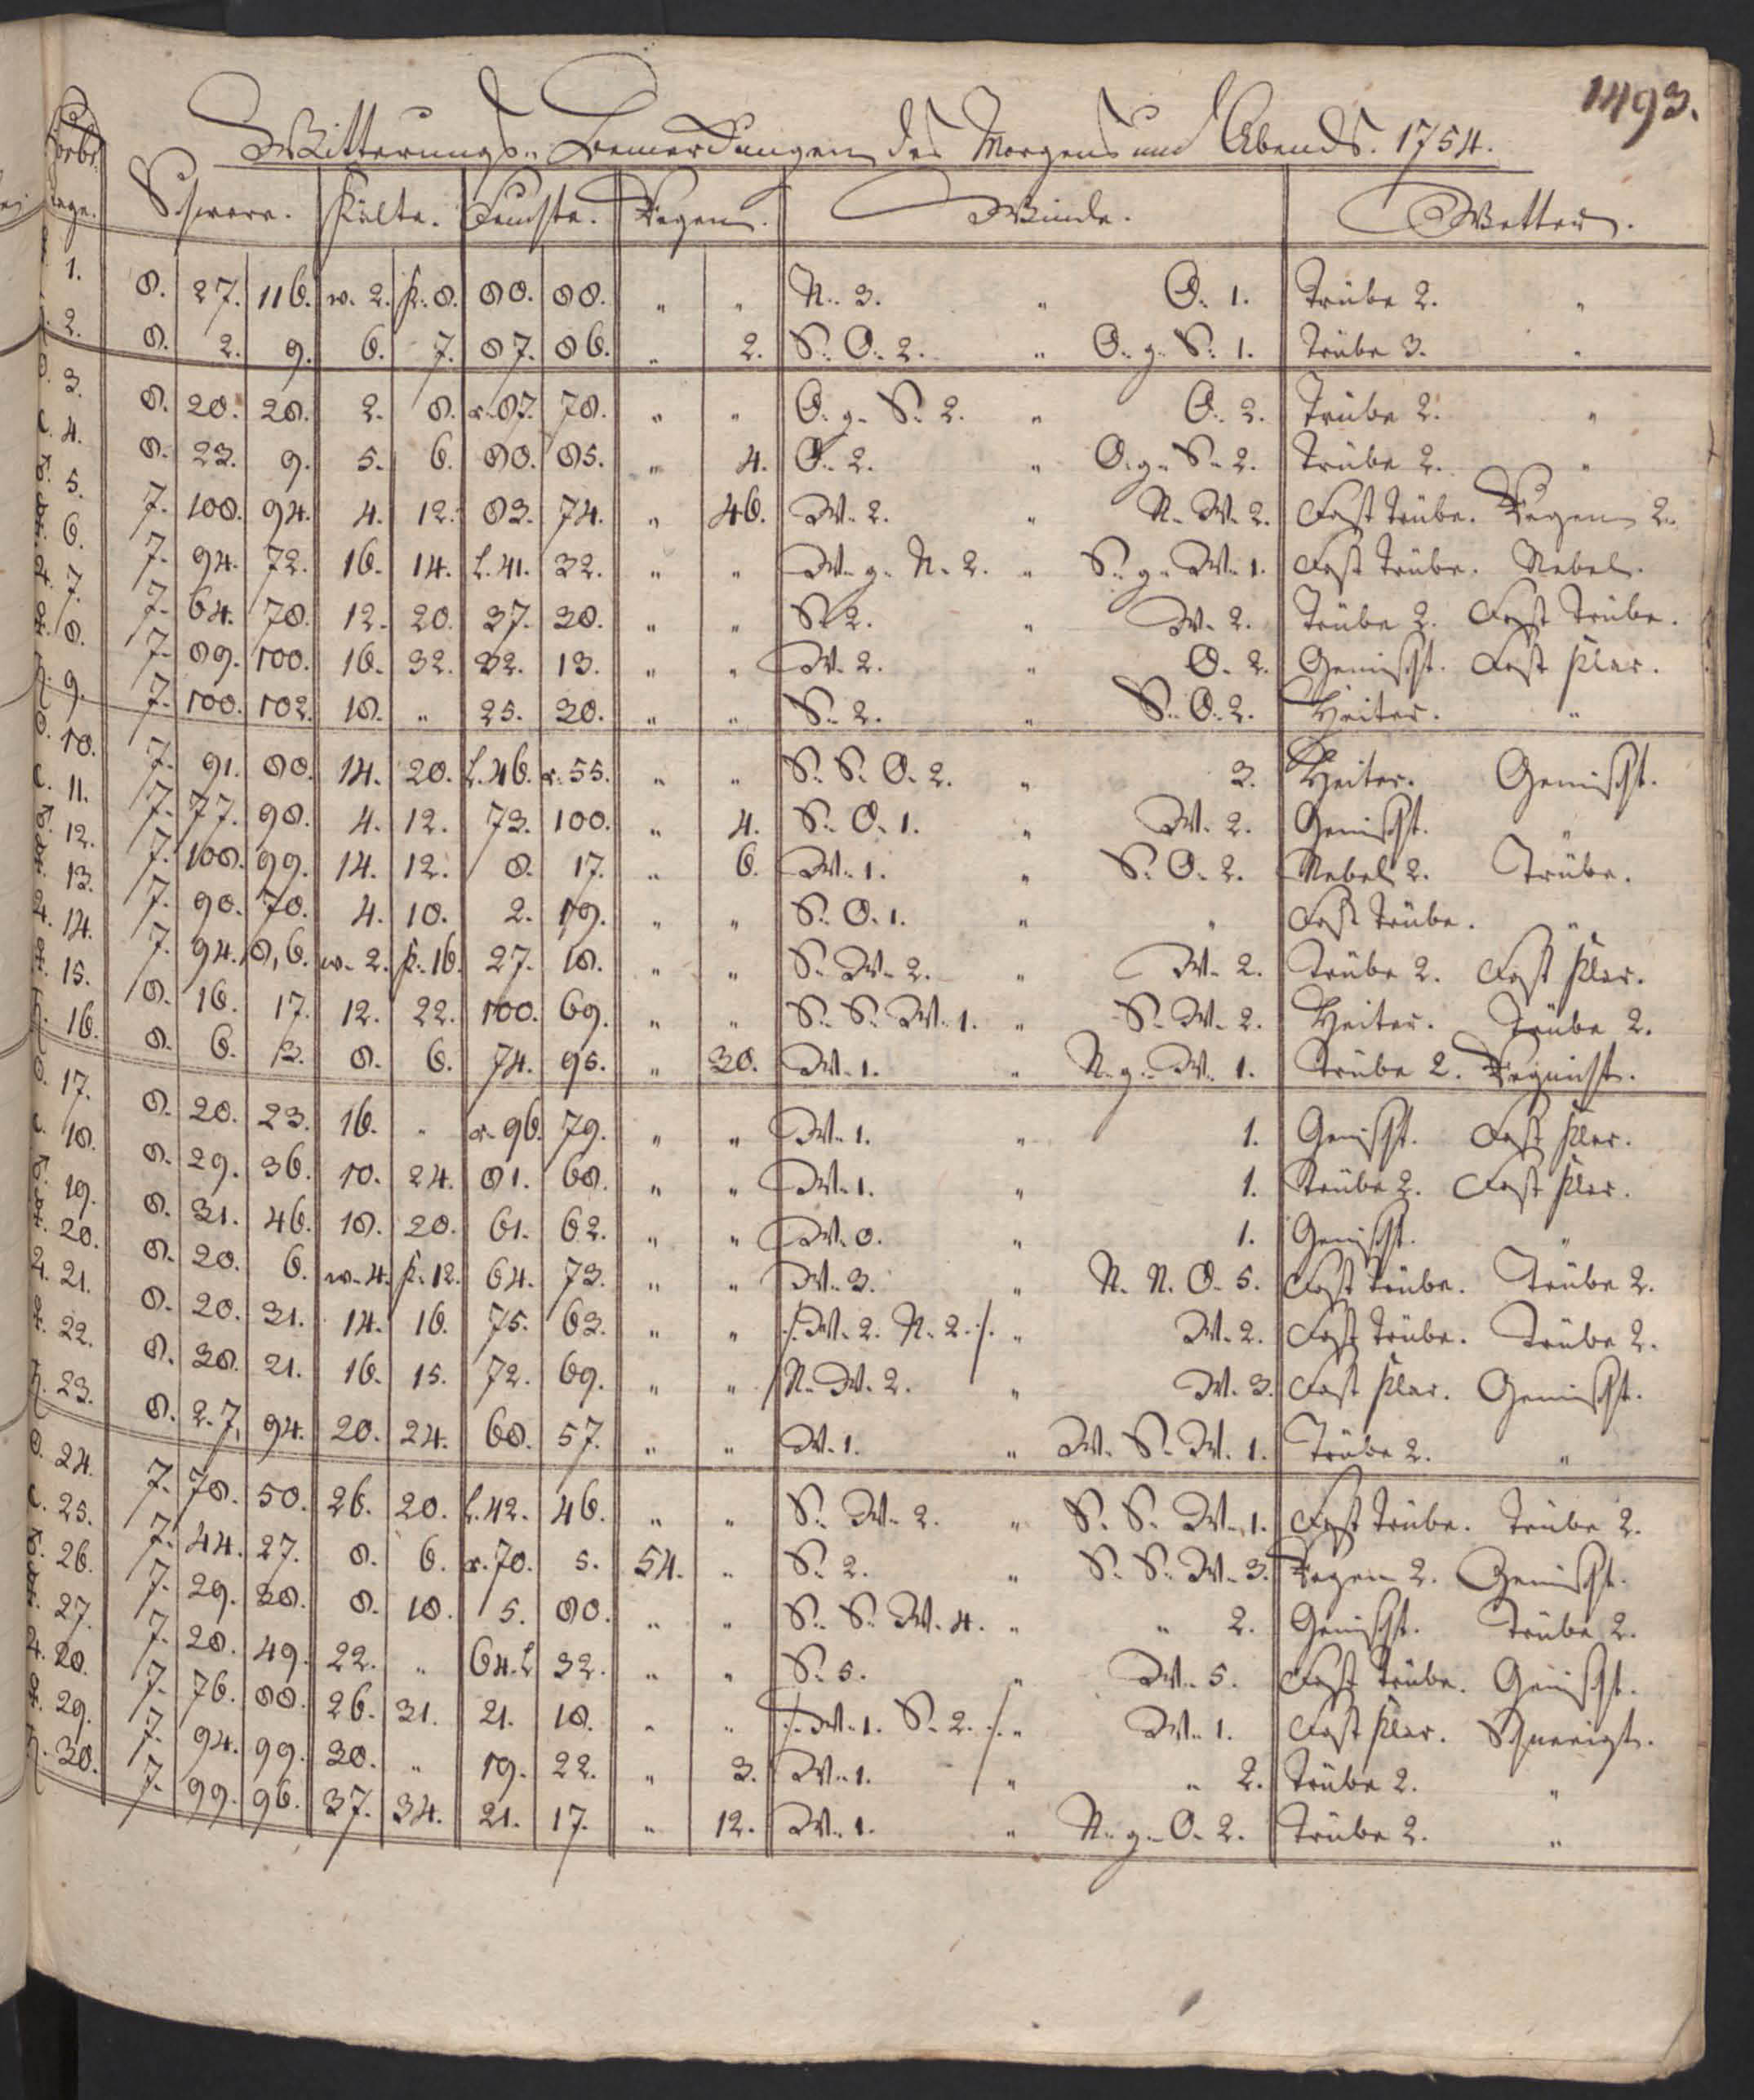 1493.
Witterungs-Bemerckungen des Morgens und Abends. 1754.
Tage. Schwere. Kälte. Feuchte. Regen. Winde. Wetter.
1. 8. 27. 116. w. 2. k. 8. 80. 88. " " N. 3. " O. 1. Trübe 2. "
2. 8. 2. 9. 6. 7. 87. 86. " 2. S. O. 2. " O. g. S. 1. Trübe 3. "
3. 8. 20. 28. 2. 8. r. 87. 78. " " O. g. S. 2. " O. 2. Trübe 2. "
4. 8. 23. 9. 5. 6. 80. 85. " 4. O. 2. " O. g. S. 2. Trübe 2. "
5. 7. 108. 94. 4. 12. 83. 74. " 46. W. 2. " N. W. 2. Fast trübe. Regen 2.
6. 7. 94. 72. 16. 14. L. 41. 32. " " W. g. N. 2. " S. g. W. 1. Fast trübe. Nebel.
7. 7. 64. 78. 12. 20. 37. 30. " " S. 2. " W. 2. Trübe 2. Fast trübe.
8. 7. 89. 100. 16. 32. 32. 13. " " W. 2. " O. 2. Gemischt. Fast klar.
9. 7. 100. 102. 18. " 25. 30. " " S. 2. " S. O. 2. Heiter. "
10. 7. 91. 80. 14. 20. L. 46. r. 55. " " S. S. O. 2. " 3. Heiter. Gemischt.
11. 7. 77. 98. 4. 12. 73. 100. " 4. S. O. 1. " W. 2. Gemischt. "
12. 7. 108. 99. 14. 12. 8. 17. " 6. W. 1. " S. O. 2. Nebel 2. Trübe.
13. 7. 90. 70. 4. 10. 2. 19. " " S. O. 1. " " Fast trübe. "
14. 7. 94. 8, 6. w. 2. k. 16. 27. 18. " " S. W. 2. " W. 2. Trübe 2. Fast klar.
15. 8. 16. 17. 12. 22. 100. 69. " " S. S. W. 1. " S. W. 2. Heiter. Trübe 2.
16. 8. 6. 13. 8. 6. 74. 95. " 30. W. 1. " N. g. W. 1. Trübe 2. Regnicht.
17. 8. 20. 23. 16. " r. 96. 79. " " W. 1. " 1. Gemischt. Fast klar.
18. 8. 29. 36. 10. 24. 81. 68. " " W. 1. " 1. Trübe 2. Fast klar.
19. 8. 31. 46. 18. 20. 61. 62. " " W. 0. " 1. Gemischt. "
20. 8. 20. 6. w. 4. k. 12. 64. 73. " " W. 3. " N. N. O. 5. Fast trübe. Trübe 2.
21. 8. 20. 31. 14. 16. 75. 63. " " /. W. 2. N. 2. /. " W. 2. Fast trübe. Trübe 2.
22. 8. 38. 21. 16. 15. 72. 69. " " N. W. 2. " W. 3. Fast klar. Gemischt.
23. 8. 2. 7, 94. 20. 24. 60. 57. " " W. 1. " W. S. W. 1. Trübe 2. "
24. 7. 78. 50. 26. 20. L. 42. 46. " " S. W. 2. " S. S. W. 1. Fast trübe. Trübe 2.
25. 7. 44. 27. 8. 6. r. 70. 5. 54. " S. 2. " S. S. W. 3. Regen 2. Gemischt.
26. 7. 29. 38. 8. 18. 5. 80. " " S. S. W. 4. " " 2. Gemischt. Trübe 2.
27. 7. 28. 49. 22. " 64. L 32. " " S. 5. " W. 5. Fast trübe. Gemischt.
28. 7. 76. 88. 26. 31. 21. 18. " " /. W. 1. S. 2. /. " W. 1. Fast klar. Schneeigt.
29. 7. 94. 99. 30. " 19. 22. " 3. W. 1. " " 2. Trübe 2. "
30. 7. 99. 96. 37. 34. 21. 17. " 12. W. 1. " N. g. O. 2. Trübe 2. "